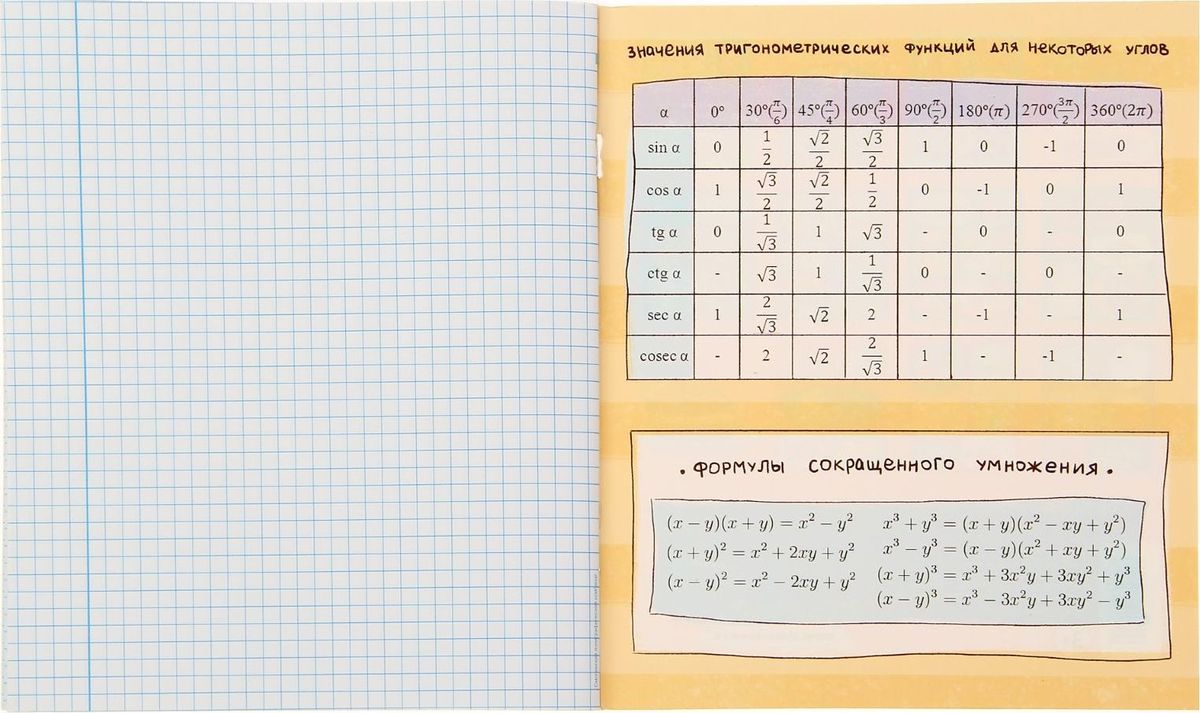 значения тригонометрических функций для некоторых углов
α 0° 30°(π/6) 45°(π/4) 60°(π/3) 90°(π/2) 180°(π) 270°(3π/2) 360°(2π)
sin α 0 1/2 √2/2 √3/2 1 0 -1 0
cos α 1 √3/2 √2/2 1/2 0 -1 0 1
tg α 0 1/√3 1 √3 - 0 - 0
ctg α - √3 1 1/√3 0 - 0 -
sec α 1 2/√3 √2 2 - -1 - 1
cosec α - 2 √2 2/√3 1 - -1 -
. формулы сокращенного умножения .
(x − y)(x + y) = x² − y²
(x + y)² = x² + 2xy + y²
(x − y)² = x² − 2xy + y²
x³ + y³ = (x + y)(x² − xy + y²)
x³ − y³ = (x − y)(x² + xy + y²)
(x + y)³ = x³ + 3x²y + 3xy² + y³
(x − y)³ = x³ − 3x²y + 3xy² − y³